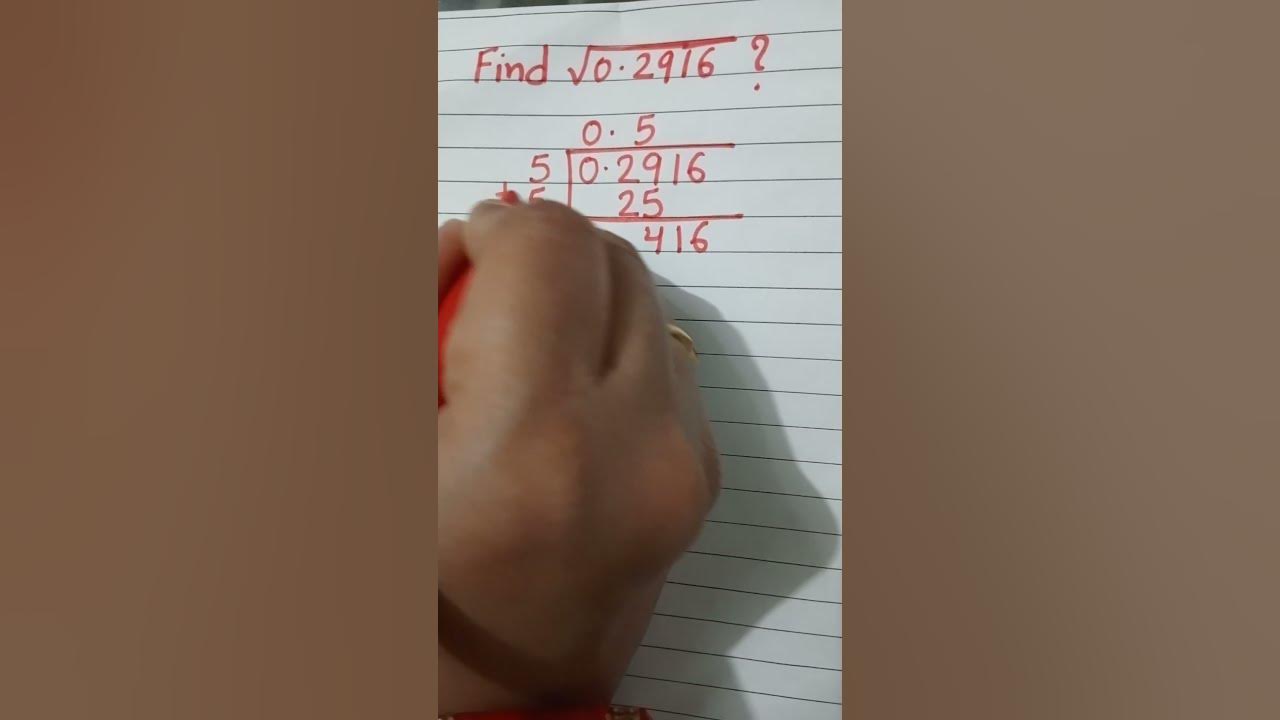 Find √0.2916 ?
0.5
5 0.2916
+5 25
416